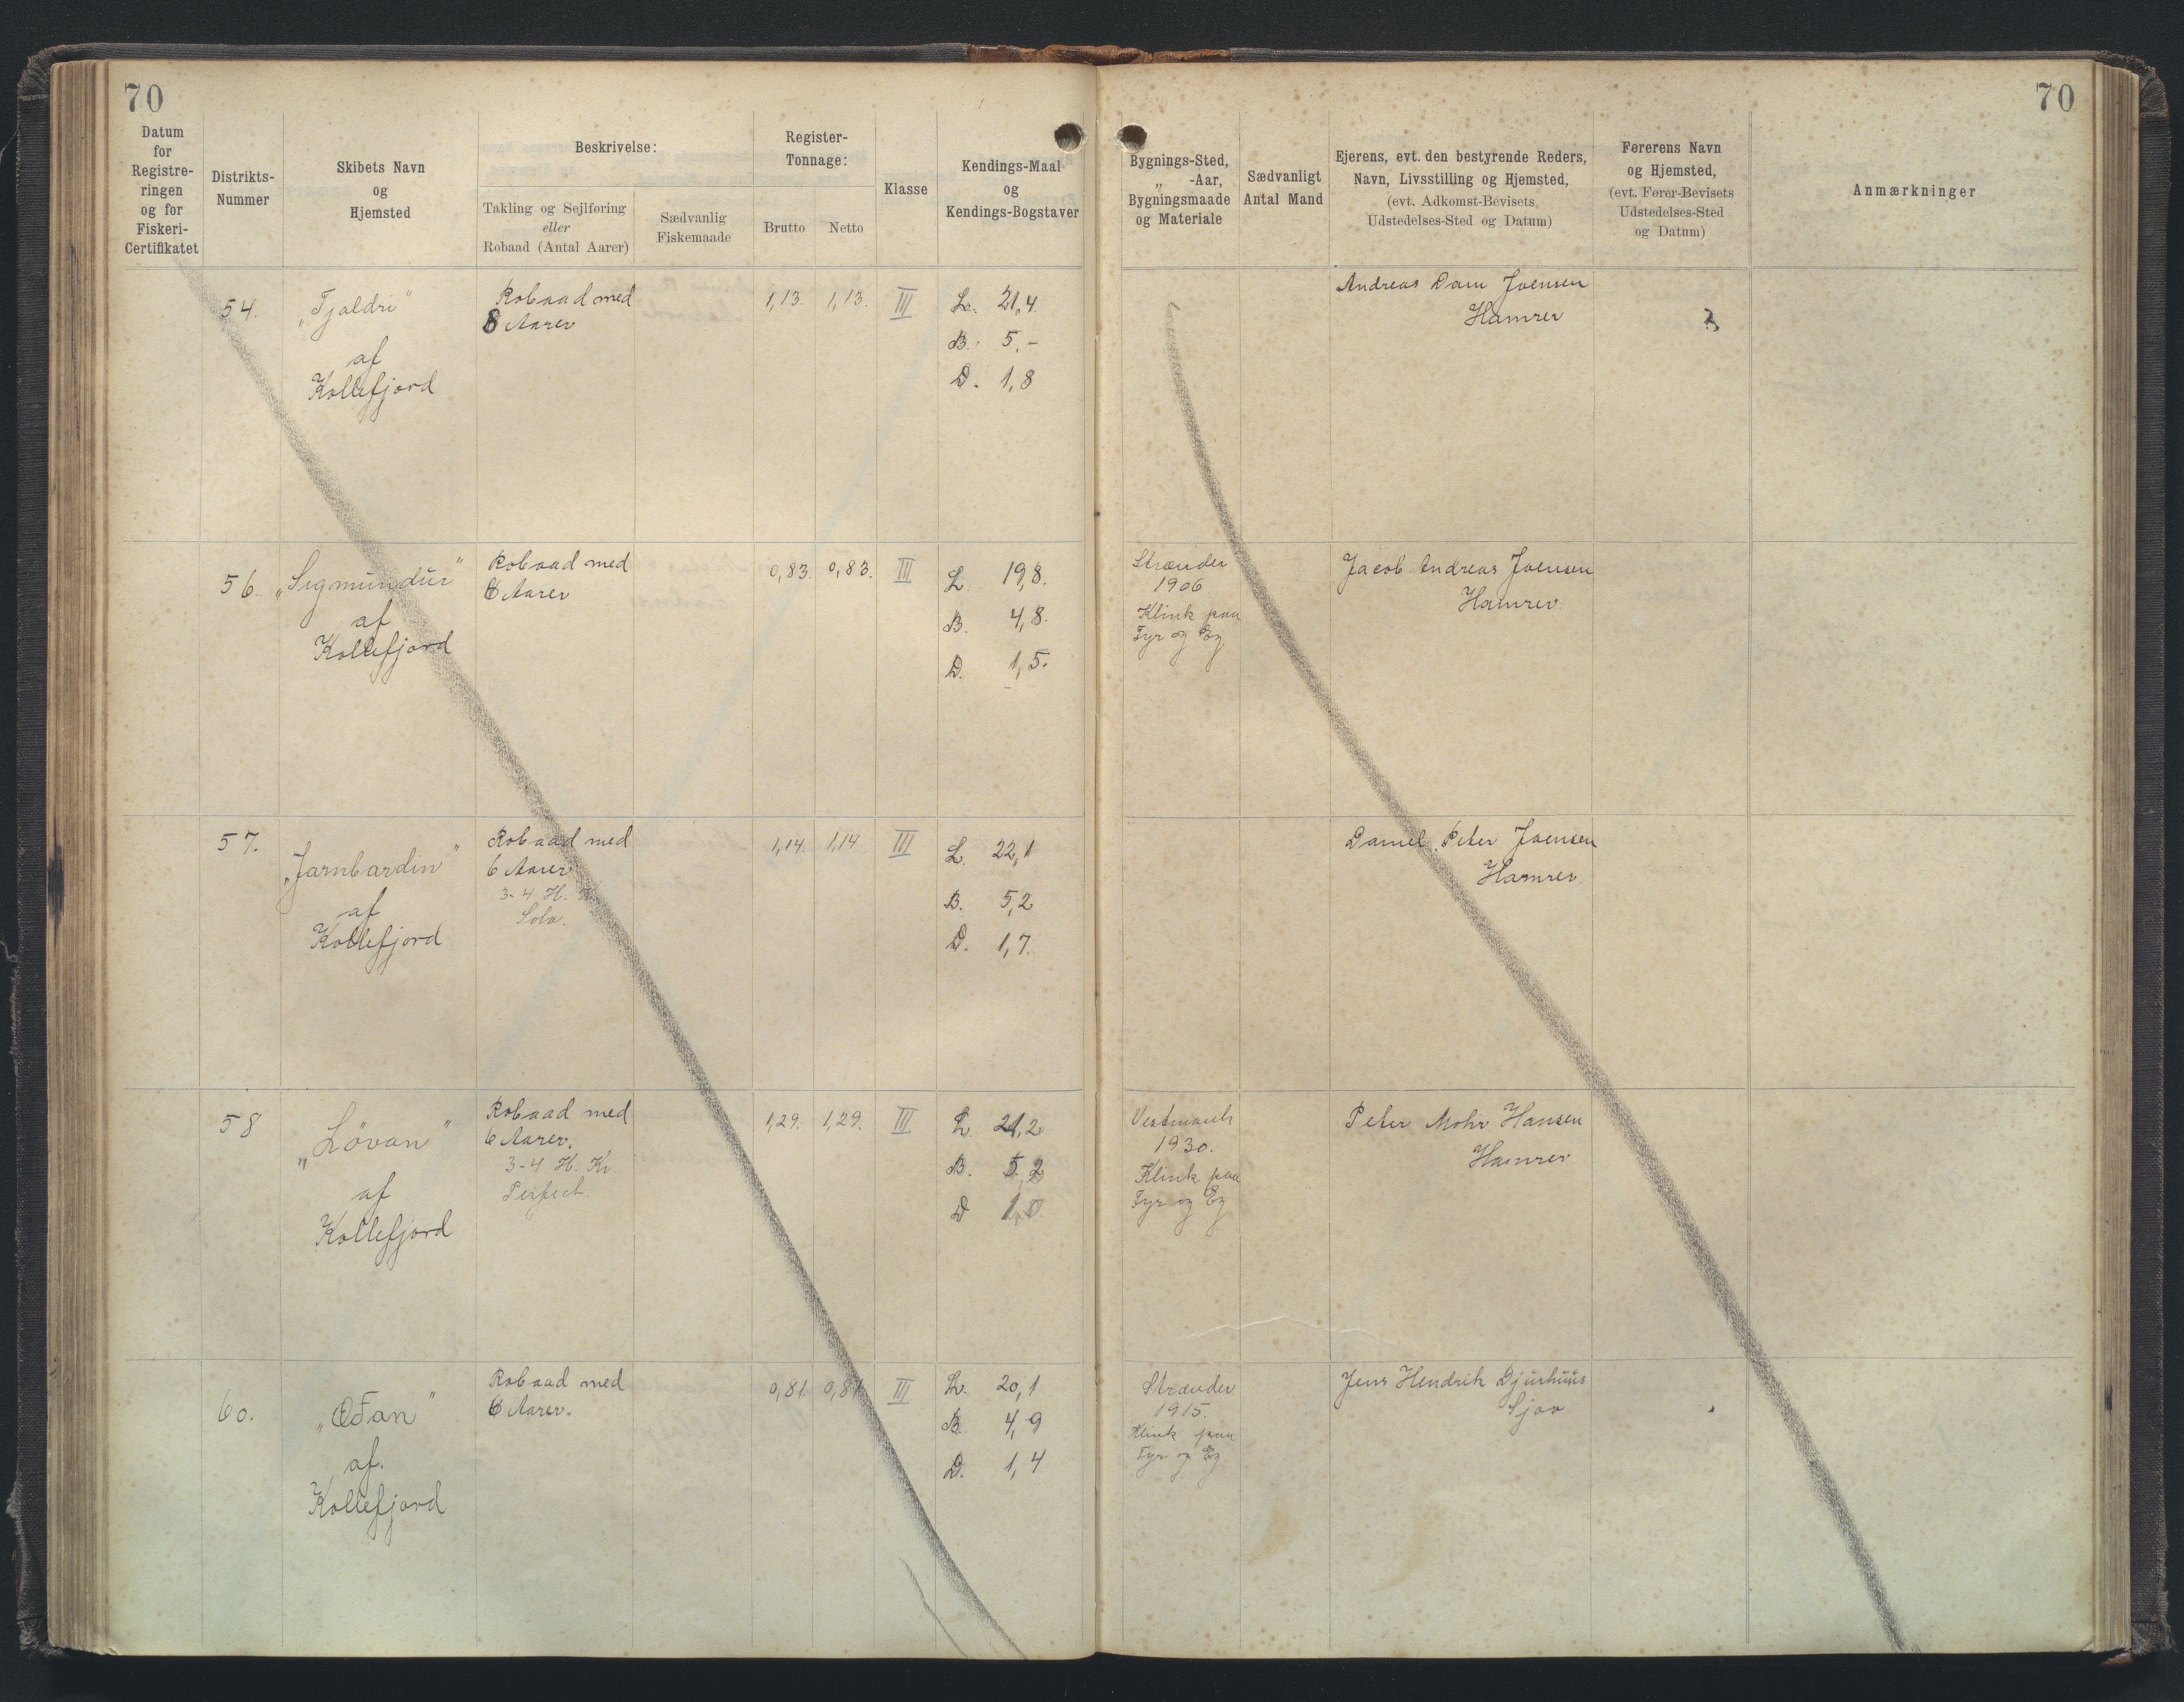 70
70
Datum
for
Registre-
ringen
og for
Fiskeri-
Certifikatet
Distrikts-
Nummer
Skibets Navn
og
Hjemsted
Beskrivelse:
Takling og Sejlføring
eller
Robaad (Antal Aarer)
Sædvanlig
Fiskemaade
Register-
Tonnage:
Brutto
Netto
Klasse
Kendings-Maal
og
Kendings-Bogstaver
Bygnings-Sted,
„ -Aar,
Bygningsmaade
og Materiale
Sædvanligt
Antal Mand
Ejerens, evt. den bestyrende Reders,
Navn, Livsstilling og Hjemsted,
(evt. Adkomst-Bevisets
Udstedelses-Sted og Datum)
Førerens Navn
og Hjemsted,
(evt. Fører-Bevisets
Udstedelses-Sted
og Datum)
Anmærkninger
54.
„Tjaldri"
af
Kollefjord
Robaad med
8 Aarer
1,13.
1,13.
III
L. 21,4.
B. 5,-
D. 1,8
Andreas Dam Joensen
Hamrer
56
„Sigmundur"
af
Kollefjord
Robaad med
6 Aarer
0,83.
0,83.
III
L. 19,8.
B. 4,8.
D. 1,5.
Strænder
1906
Klink paa
Fyr og Eg
Jacob Andreas Joensen
Hamrer
57.
„Jarnbardin"
af
Kollefjord
Robaad med
6 Aarer
3-4 H. K.
Solo.
1,14.
1,14
III
L. 22,1
B. 5,2
D. 1,7.
Daniel Peter Joensen
Hamrer
58
„Lövan"
af
Kollefjord
Robaad med
6 Aarer.
3-4 H. Kr.
Perfect.
1,29.
1,29.
III
L. 21,2
B. 5,2
D
Vestmanh
1930.
Klink paa
Fyr og Eg
Peter Mohr Hansen
Hamrer
60.
af.
Kollefjord
Robaad med
6 Aarer.
0,81.
0,81
III
L. 20,1
B. 4,9
D. 1,4
Strænder
1915.
Klink paa
Fyr og Eg
Jens Hendrik Djurhuus
Sjov